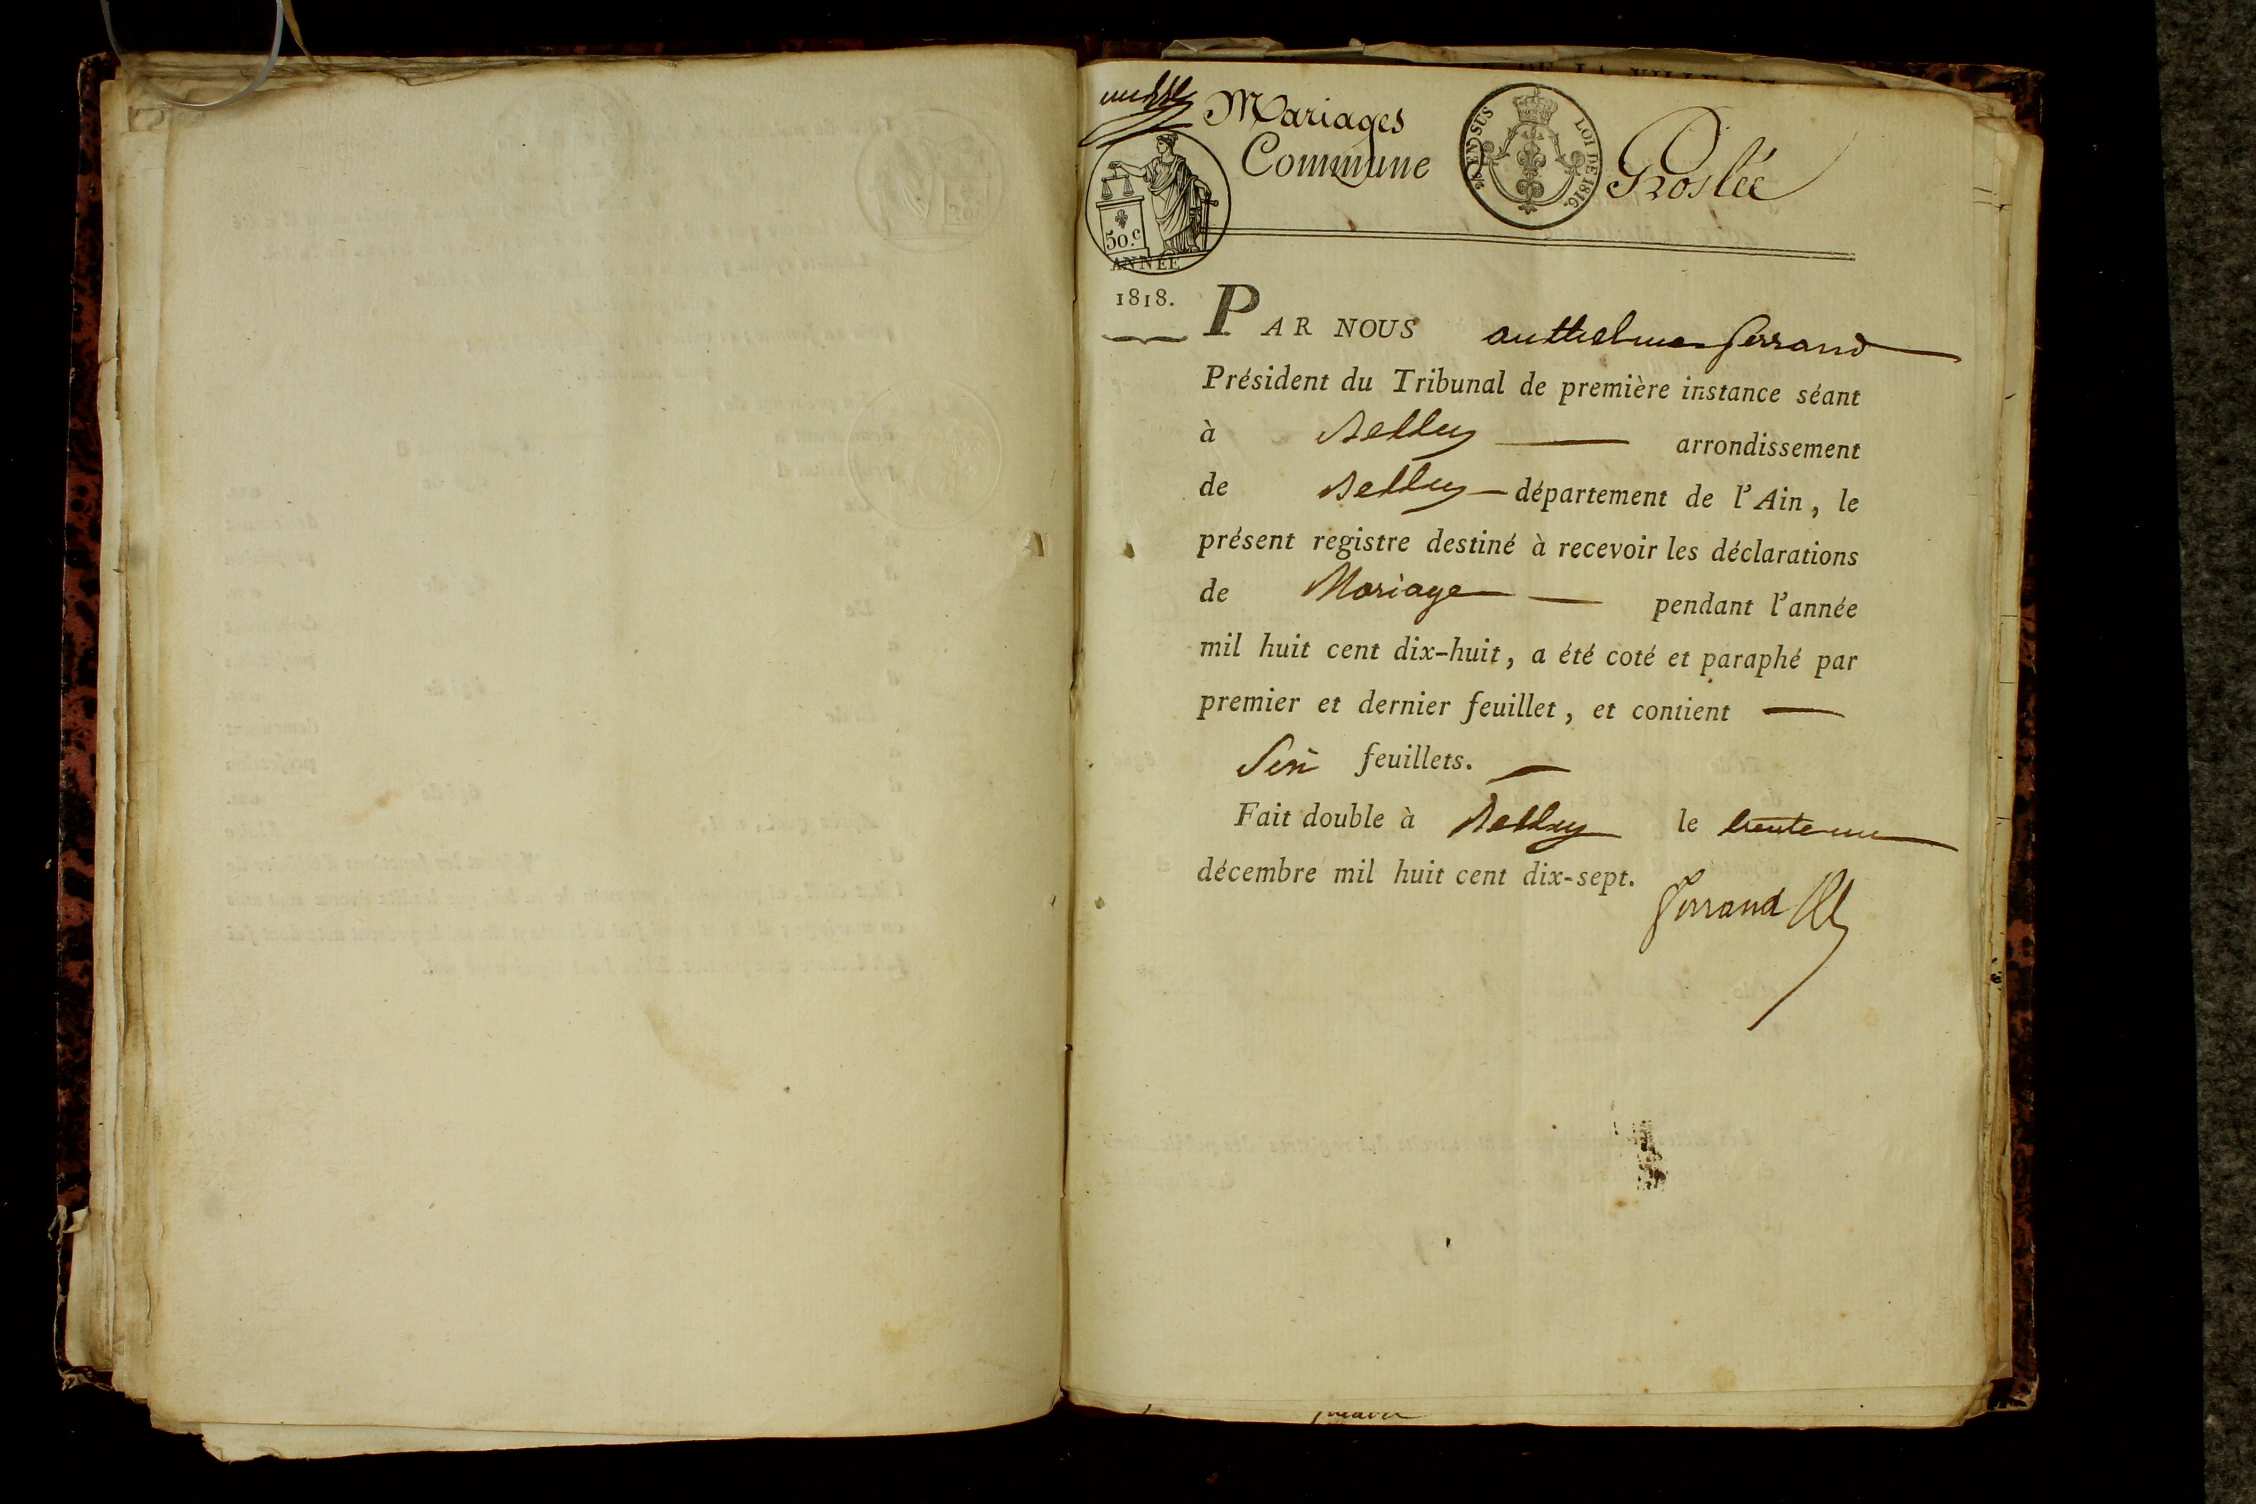 Mariages
Commune
Groslée
EN SUS
LOI DE 1816.
50.c
ANNÉE
1818.
PAR NOUS anthelme ferrand
Président du Tribunal de première instance séant
à Belley arrondissement
de Belley département de l'Ain, le
présent registre destiné à recevoir les déclarations
de Mariage pendant l'année
mil huit cent dix-huit, a été coté et paraphé par
premier et dernier feuillet, et contient
Six feuillets.
Fait double à Belley le trente un
décembre mil huit cent dix-sept.
ferrand